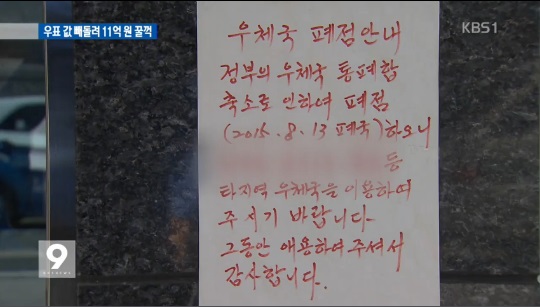 우표 값 빼돌려 11억 원 꿀꺽
KBS1
우체국 폐점안내
정부의 우체국 통폐합
축소로 인하여 폐점
(2015.8.13 폐국)하오니
등
타지역 우체국을 이용하여
주시기 바랍니다.
그동안 애용하여 주셔서
감사합니다.
9